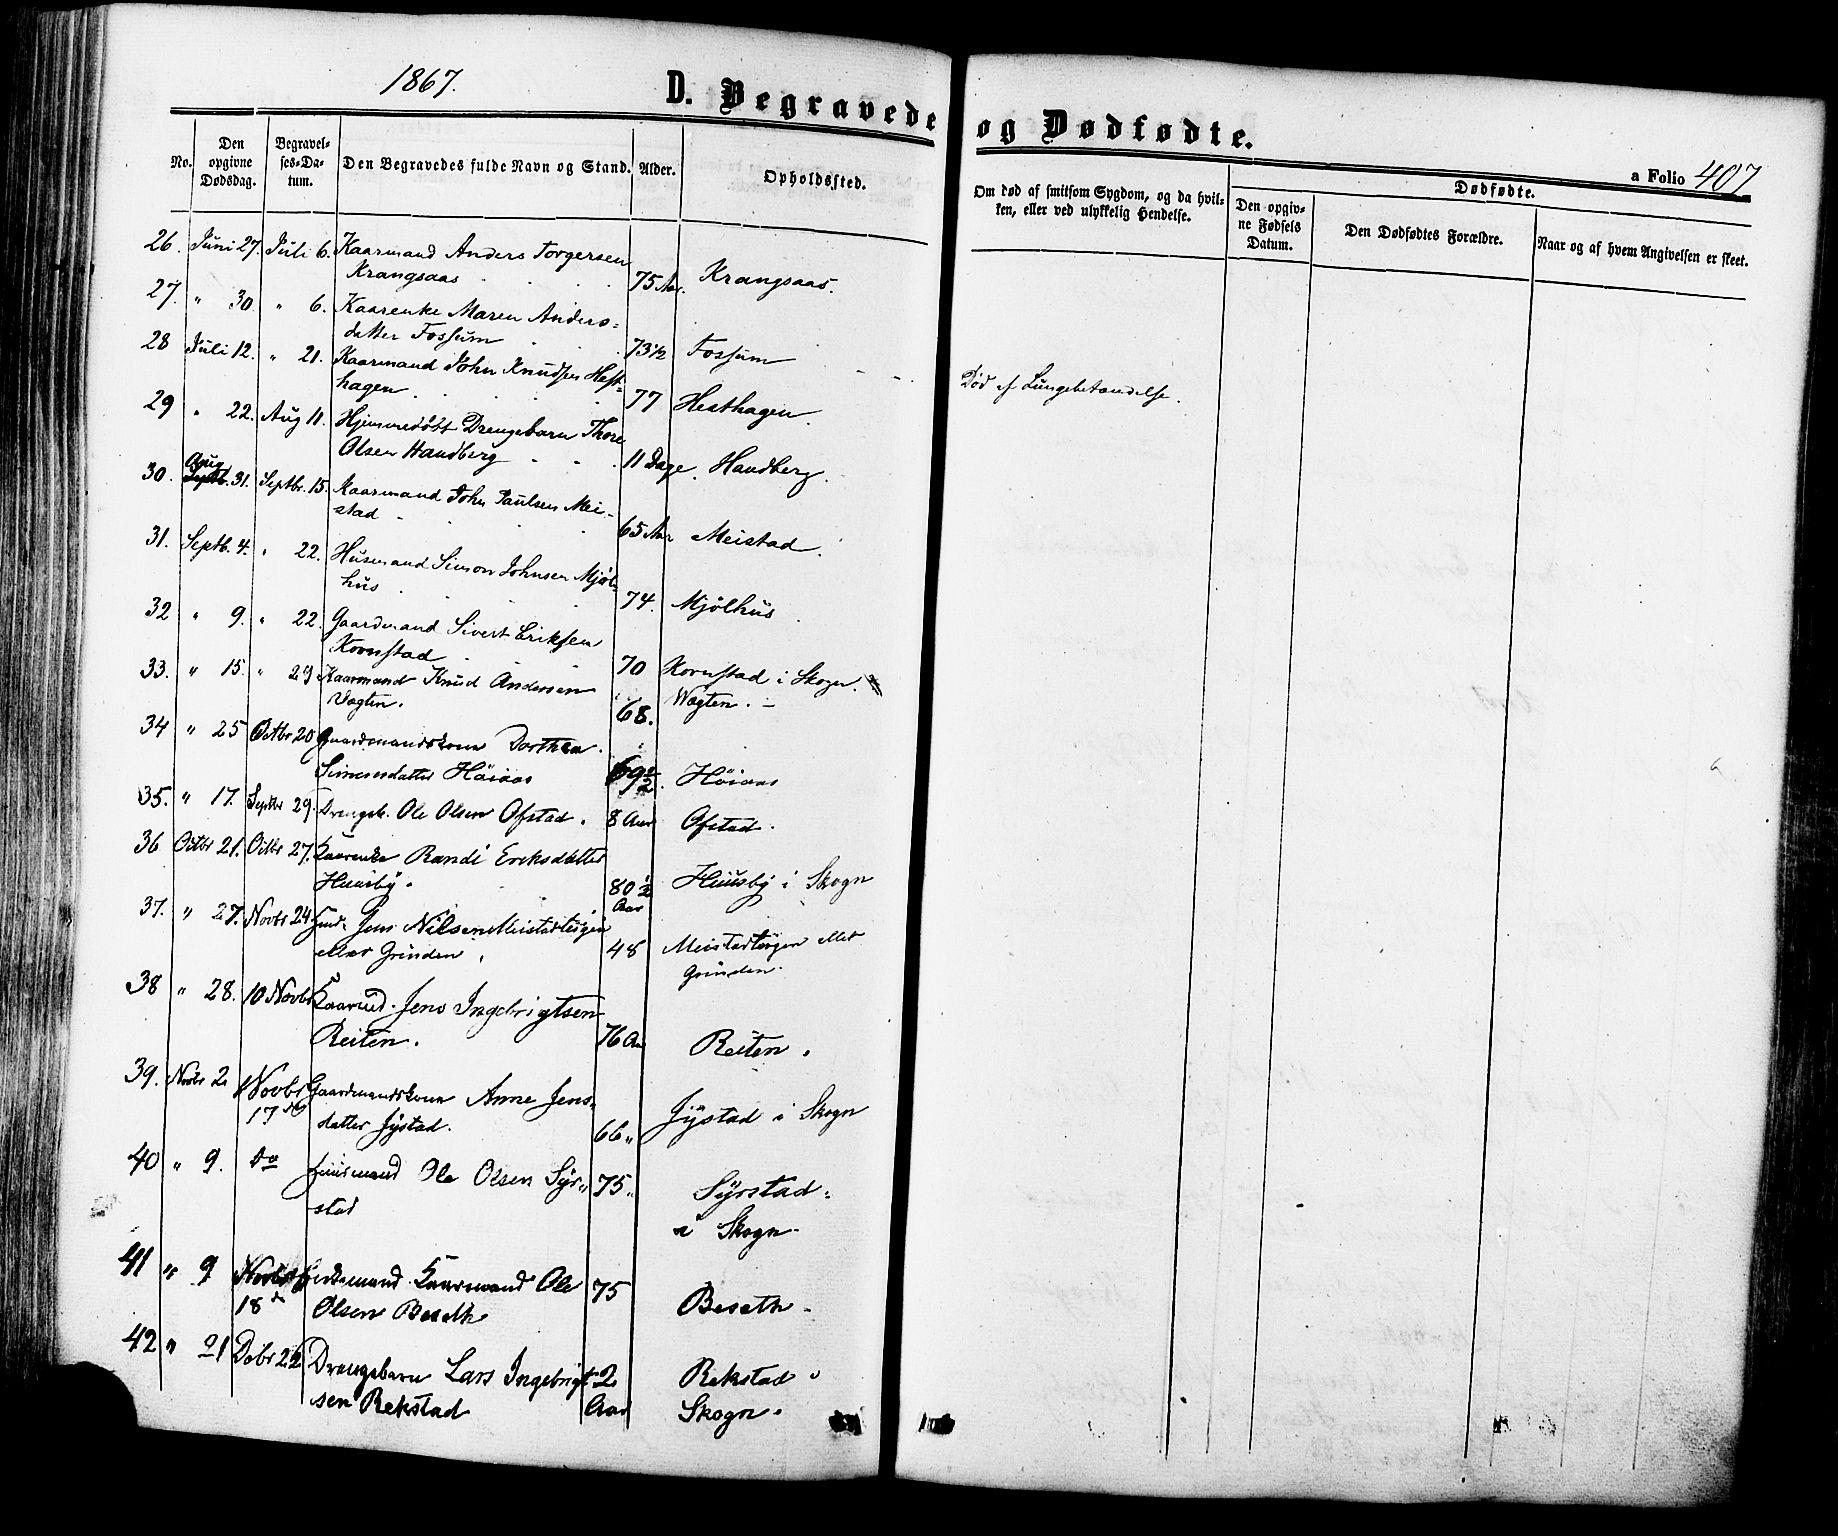 1867.
D. Begravede og Dødfødte.
a Folio 407
No.
Den opgivne Dødsdag.
Begravelses-Datum.
Den Begravedes fulde Navn og Stand.
Alder.
Opholdssted.
Om død af smitsom Sygdom, og da hvilken, eller ved ulykkelig Hendelse.
Dødfødte.
Den opgivne Fødsels Datum.
Den Dødfødtes Forældre.
Naar og af hvem Angivelsen er skeet.
26. Juni 27. Juli 6. Kaarmand Anders Torgersen
Krangsaas 75 Aar. Krangsaas.
27. " 30. " 6. Kaarenke Maren Anders-
datter Fossum 73 1/2 Fossum
28 Juli 12. " 21. Kaarmand John Knudsen Hest-
hagen 77 Hesthagen. Død af Lungebetændelse.
29 " 22. Aug 11. Hjemmedøbt Drengebarn Thore
Olsen Handberg 11 Dage. Handberg.
30. Aug 31. Septbr. 15. Kaarmand John Paulsen Mei-
stad 65 Aar Meistad.
31. Septb. 4. " 22. Husmand Simon Johnsen Mjøl-
hus 74. Mjølhus
32 " 9. " 22. Gaardmand Sivert Eriksen
Kornstad 70 Kornstad i Skogn.
33. " 15. " 29 Kaarmand Knud Andersen
Vagten. 68. Wagten.
34 " 25 Octbr 20 Gaardmandskone Dorthea
Simensdatter Höiaas 69 1/2. Höiaas
35. " 17. Septbr 29. Drengeb. Ole Olsen Ofstad. 8 Aar Ofstad.
36 Octbr 21. Octbr 27. Kaarenke Randi Eriksdatter
Huusby. 80 1/2 Aar Huusby i Skogn
37. " 27. Novbr 24 Jens Nilsen Meistadtrøgen
eller Grinden. 48 Meistadtrøgen eller
Grinden.
38 " 28. 10 Novbr Kaarmd. Jens Ingebrigtsen
Reiten. 76 Aar Reiten.
39. Novbr 2 Novbr 17de Gaardmandskone Anne Jens-
datter Jystad. 66 " Jystad i Skogn
40 " 9. do Huusmand Ole Olsen Syr-
stad 75 " Syrstad
i Skogn.
41 " 9 Novbr 18de Enkemand Kaarmand Ole
Olsen Beseth 75 Beseth.
42 " 21 Debr 22 Drengebarn Lars Ingebrigt-
sen Rekstad 2 Aar Rekstad
Skogn.